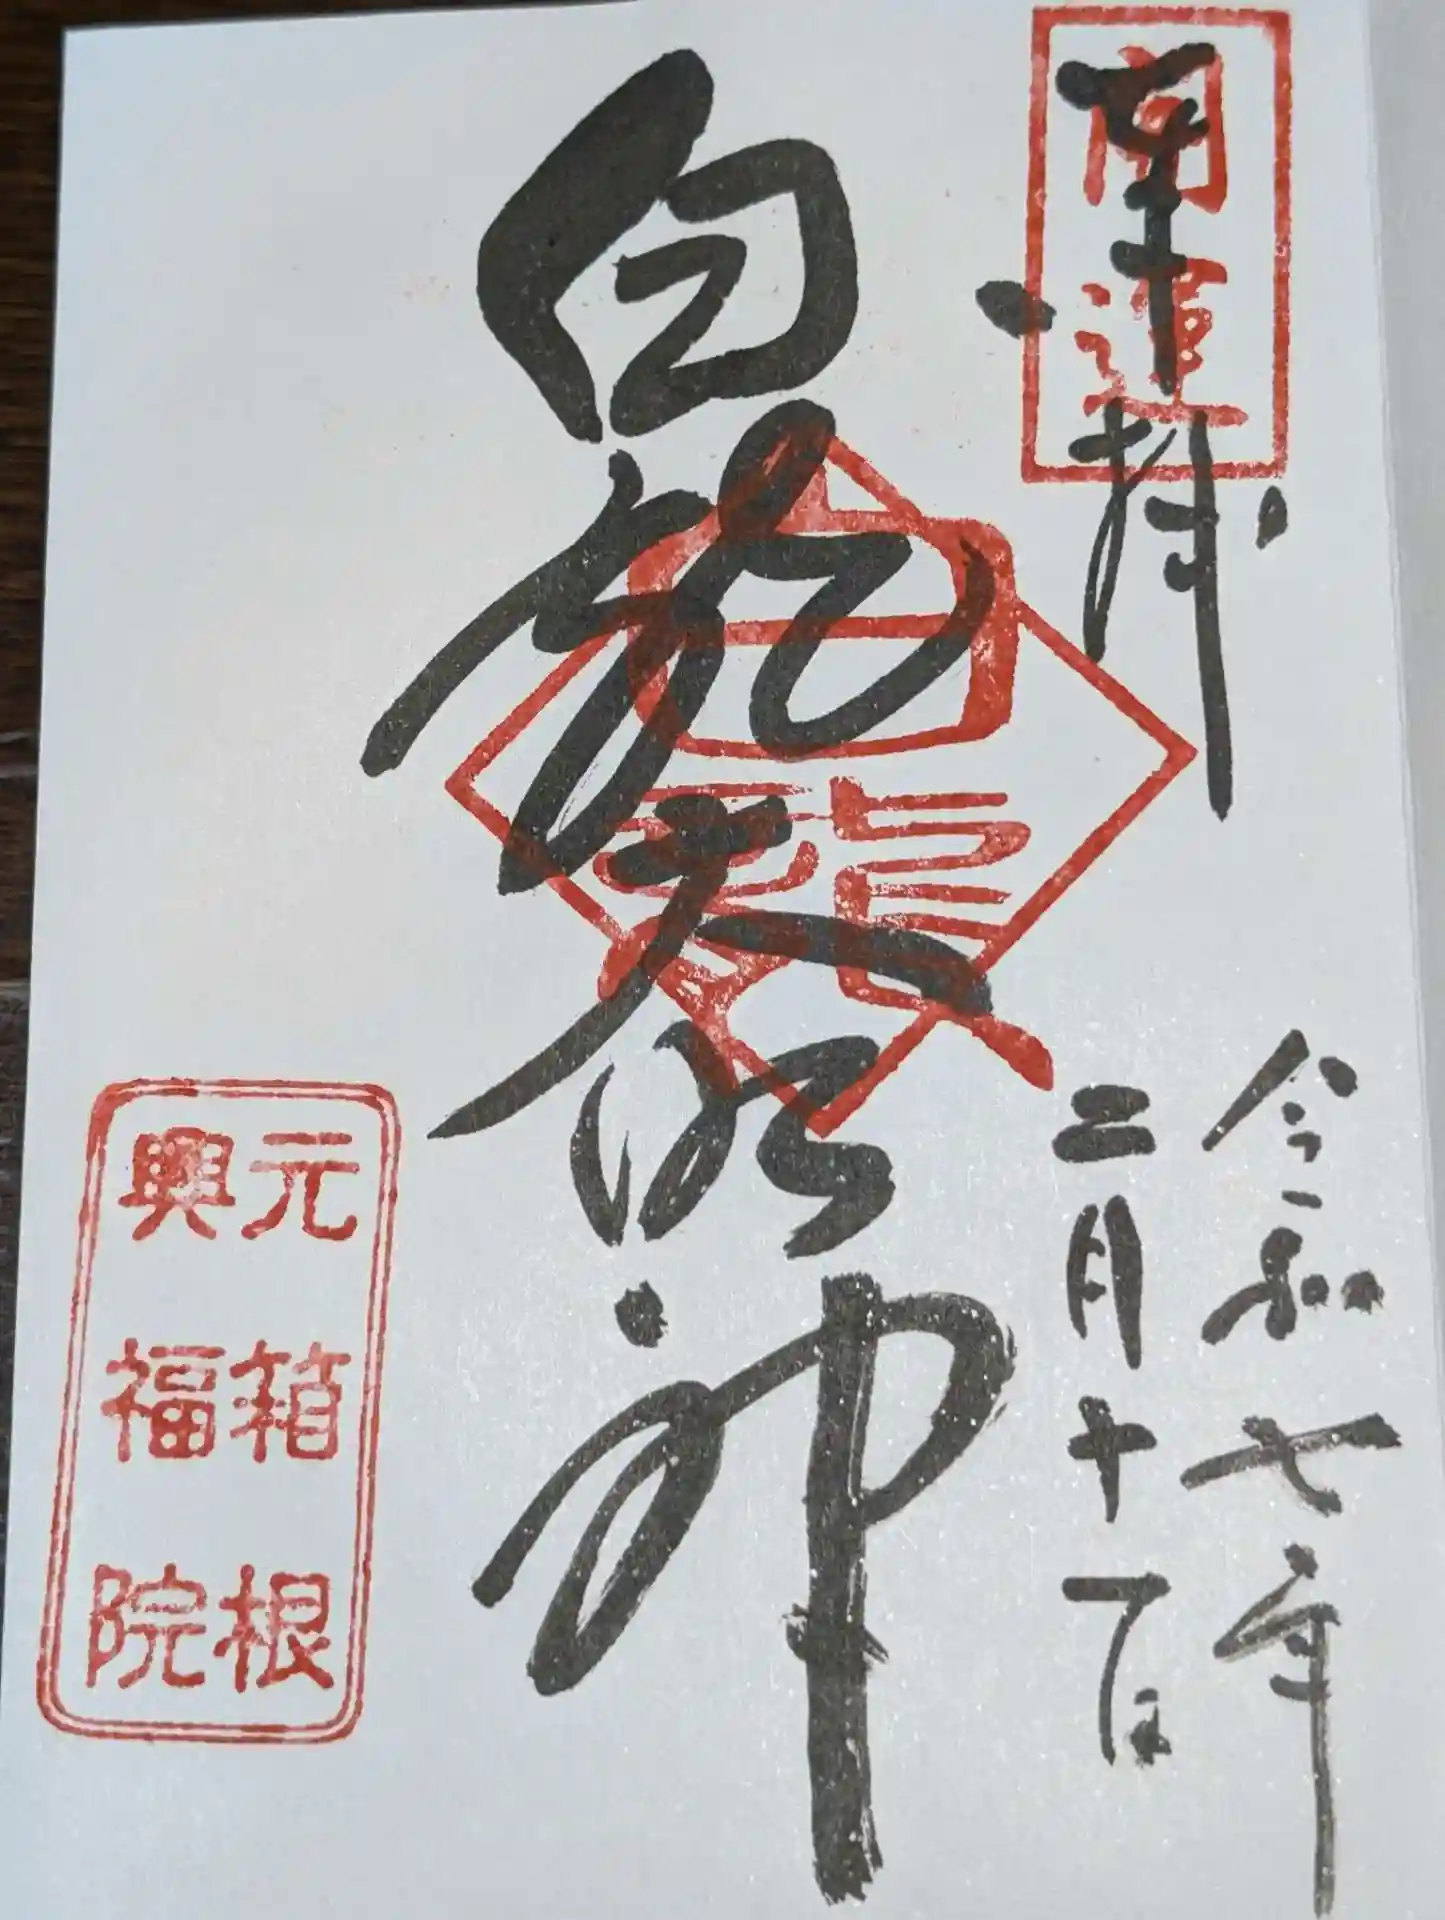 開運
奉拝
令和七年
二月十一日
白龍大明神
白龍
元箱根
興福院